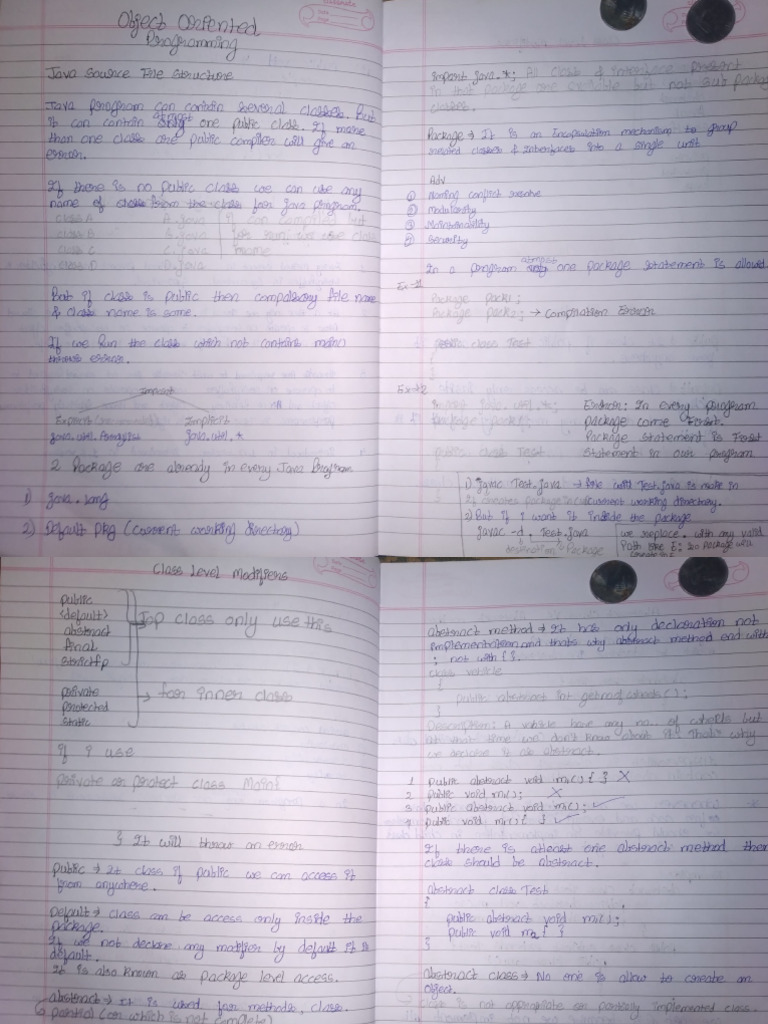 Object Oriented
Programming
Java Source File Structure
Java program can contain several classes. But
it can contain atmost one public class. If more
than one class are public compiler will give an
error.
If there is no public class we can use any
name of class from the class for java program.
class A A.java if can compiles but
class B B.java for run we use class
class C C.java name
class D D.java
But if class is public then compulsory file name
& class name is same.
If we run the class which not contains main
throws error.
Import
Explicit Implicit
java.util.ArrayList java.util.*
2 Package are already in every Java Program
1) java.lang
2) Default pkg (current working directory)
import java.*; All class & interface present
in that package are available but not sub package
classes.
Package → It is an Encapsulation mechanism to group
related classes & Interfaces into a single unit
Adv
① Naming conflict resolve
② Modularity
③ Maintainability
④ Security
In a program atmost one package statement is allowed.
Ex-1
Package pack1;
Package pack2; → Compilation Error
class Test
{
}
Ex-2
import java.util.*; Error: In every program
package pack1; package come First.
public class Test Package statement is First
statement in our program
1) javac Test.java → file with Test.java is made in
current working directory.
2) But if I want it inside the package
javac -d . Test.java we replace . with any valid
destination Package Path like E: so package will
Class Level Modifiers
public
<default>
abstract
final
strictfp
Top class only use this
private
protected
static
→ for inner class
if I use
private or protect class Main{
} It will throw an error
public → It class if public we can access it
from anywhere.
Default → class can be access only inside the
package.
If we not declare any modifier by default it is
default.
It is also known as package level access.
abstract → It is used for methods, class.
↳ partial (or which is not complete)
abstract method → It has only declaration not
implementation and that's why abstract method end with
; not with { }.
class vehicle
{
public abstract int getnoofwheels();
}
Description: A vehicle have any no. of wheels but
at that time we don't know about it that's why
we declare it as abstract.
1 public abstract void m1() { } ✗
2 public void m1(); ✗
3 public abstract void m1(); ✓
4 public void m1() { } ✓
If there is atleast one abstract method then
class should be abstract.
abstract class Test
{
public abstract void m1();
public void m2 { }
}
abstract class → No one is allow to create an
object.
class is not appropriate or partially implemented class.